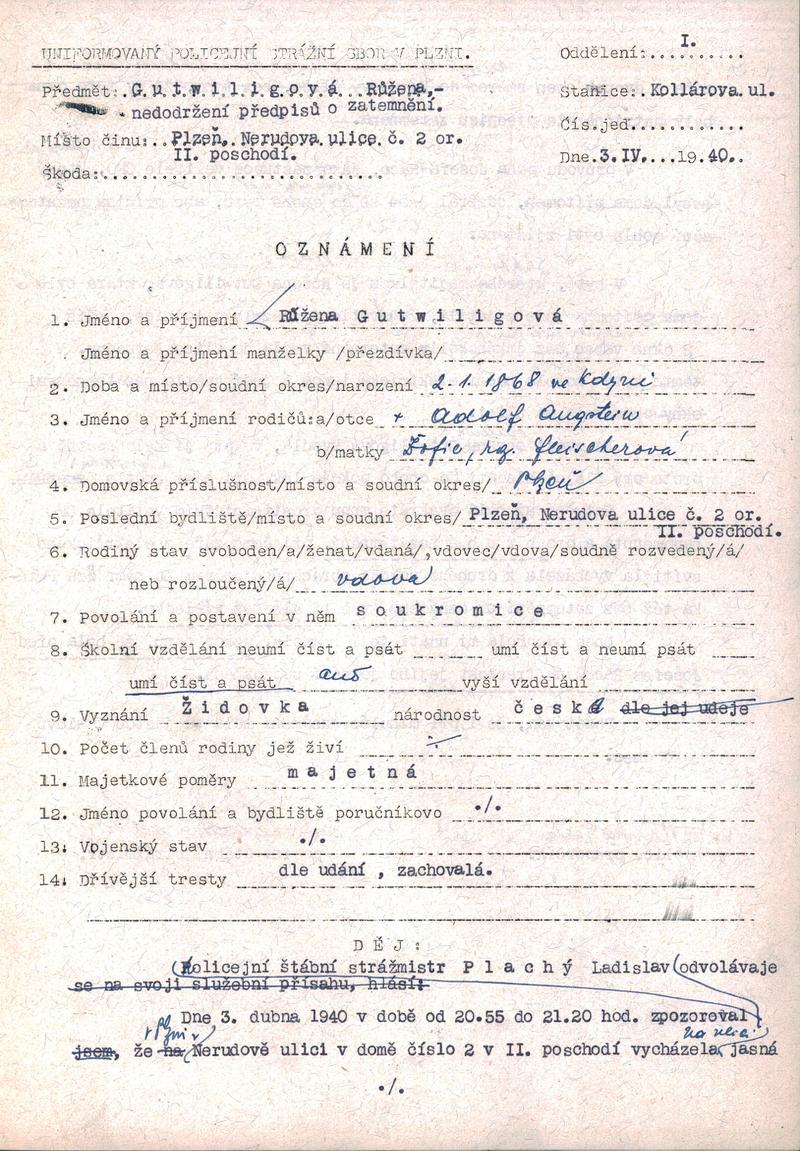 UNIFORMOVANÝ POLICEJNÍ STRÁŽNÍ SBOR V PLZNI.
Oddělení:...I.......
Předmět: G u t w i l i g o v á Růžena,-
nedodržení předpisů o zatemnění.
Stanice: Kollárova ul.
Čís.jed............
Místo činu:..Plzeň, Nerudova ulice č. 2 or.
II. poschodí.
Dne.3.IV....19.40..
Škoda:................................
O Z N Á M E N Í
1. Jméno a příjmení Růžena G u t w i l i g o v á
Jméno a příjmení manželky /přezdívka/
2. Doba a místo/soudní okres/narození 2.1.1868 ve Kdyni
3. Jméno a příjmení rodičů:a/otce + Adolf Augstein
b/matky Žofie, roz. Fleischerová
4. Domovská příslušnost/místo a soudní okres/ Plzeň
5. Poslední bydliště/místo a soudní okres/ Plzeň, Nerudova ulice č. 2 or.
II. poschodí.
6. Rodiný stav svoboden/a/ženat/vdaná/,vdovec/vdova/soudně rozvedený/á/
neb rozloučený/á/ vdova
7. Povolání a postavení v něm s o u k r o m i c e
8. Školní vzdělání neumí číst a psát umí číst a neumí psát
umí číst a psát ano vyší vzdělání
9. Vyznání Ž i d o v k a národnost č e s k á dle jej udeje
10. Počet členů rodiny jež živí ÷
11. Majetkové poměry m a j e t n á
12. Jméno povolání a bydliště poručníkovo ./.
13. Vojenský stav ./.
14. Dřívější tresty dle udání , zachovalá.
D Ě J :
(Policejní štábní strážmistr P l a c h ý Ladislav(odvolávaje
se na svoji služební přísahu, hlásí:
Dne 3. dubna 1940 v době od 20.55 do 21.20 hod. zpozoroval
v Plzni v na ulici
jsem, že na Nerudově ulici v domě číslo 2 v II. poschodí vycházela jasná
./.